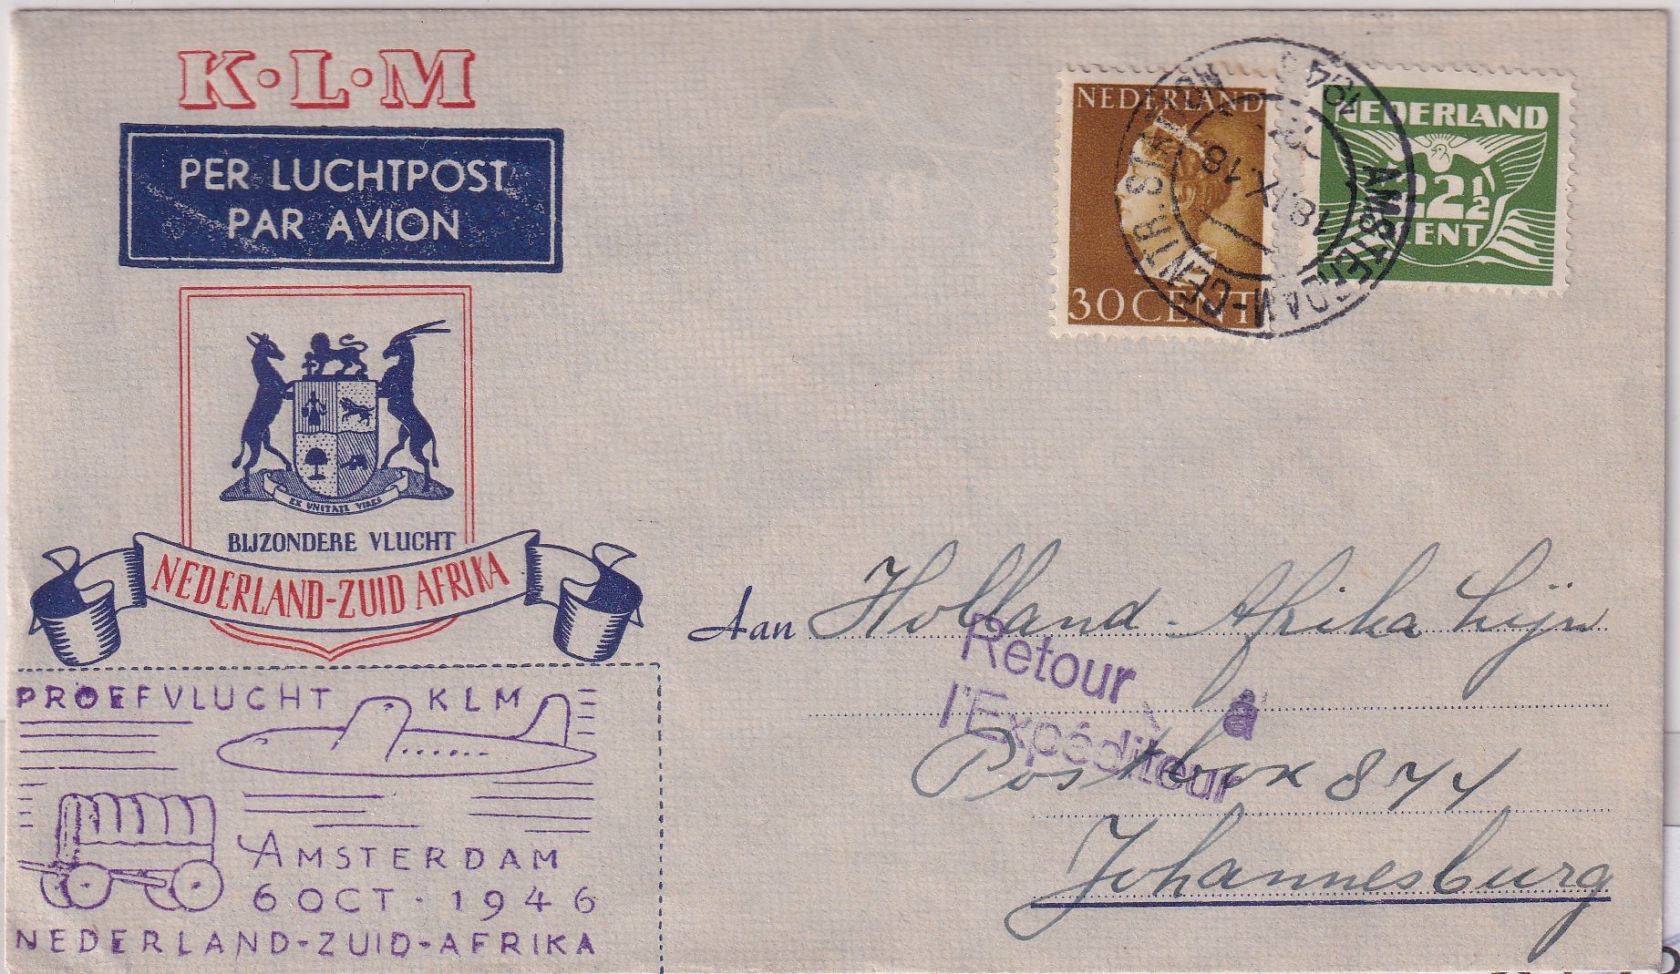 K·L·M
PER LUCHTPOST
PAR AVION
EX UNITATE VIRES
BIJZONDERE VLUCHT
NEDERLAND-ZUID AFRIKA
PROEFVLUCHT KLM
AMSTERDAM
6 OCT · 1946
NEDERLAND-ZUID-AFRIKA
NEDERLAND
30 CENT
NEDERLAND
22½
CENT
AMSTERDAM-CENTR.ST
18.IX.18
Aan Holland-Afrika Lijn
Retour à
l'Expéditeur
Postbox 844
Johannesburg